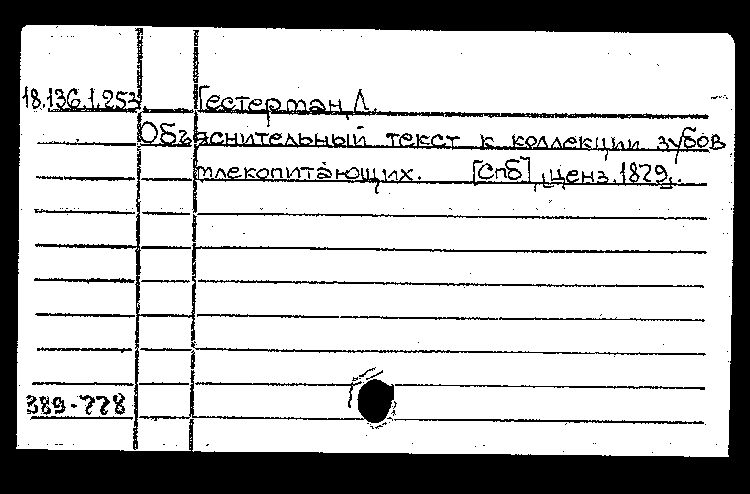 18.136.1.253. Гестерман, Л.
Объяснительный текст к коллекции зубов
млекопитающих. [Спб], ценз. 1879.
389-778